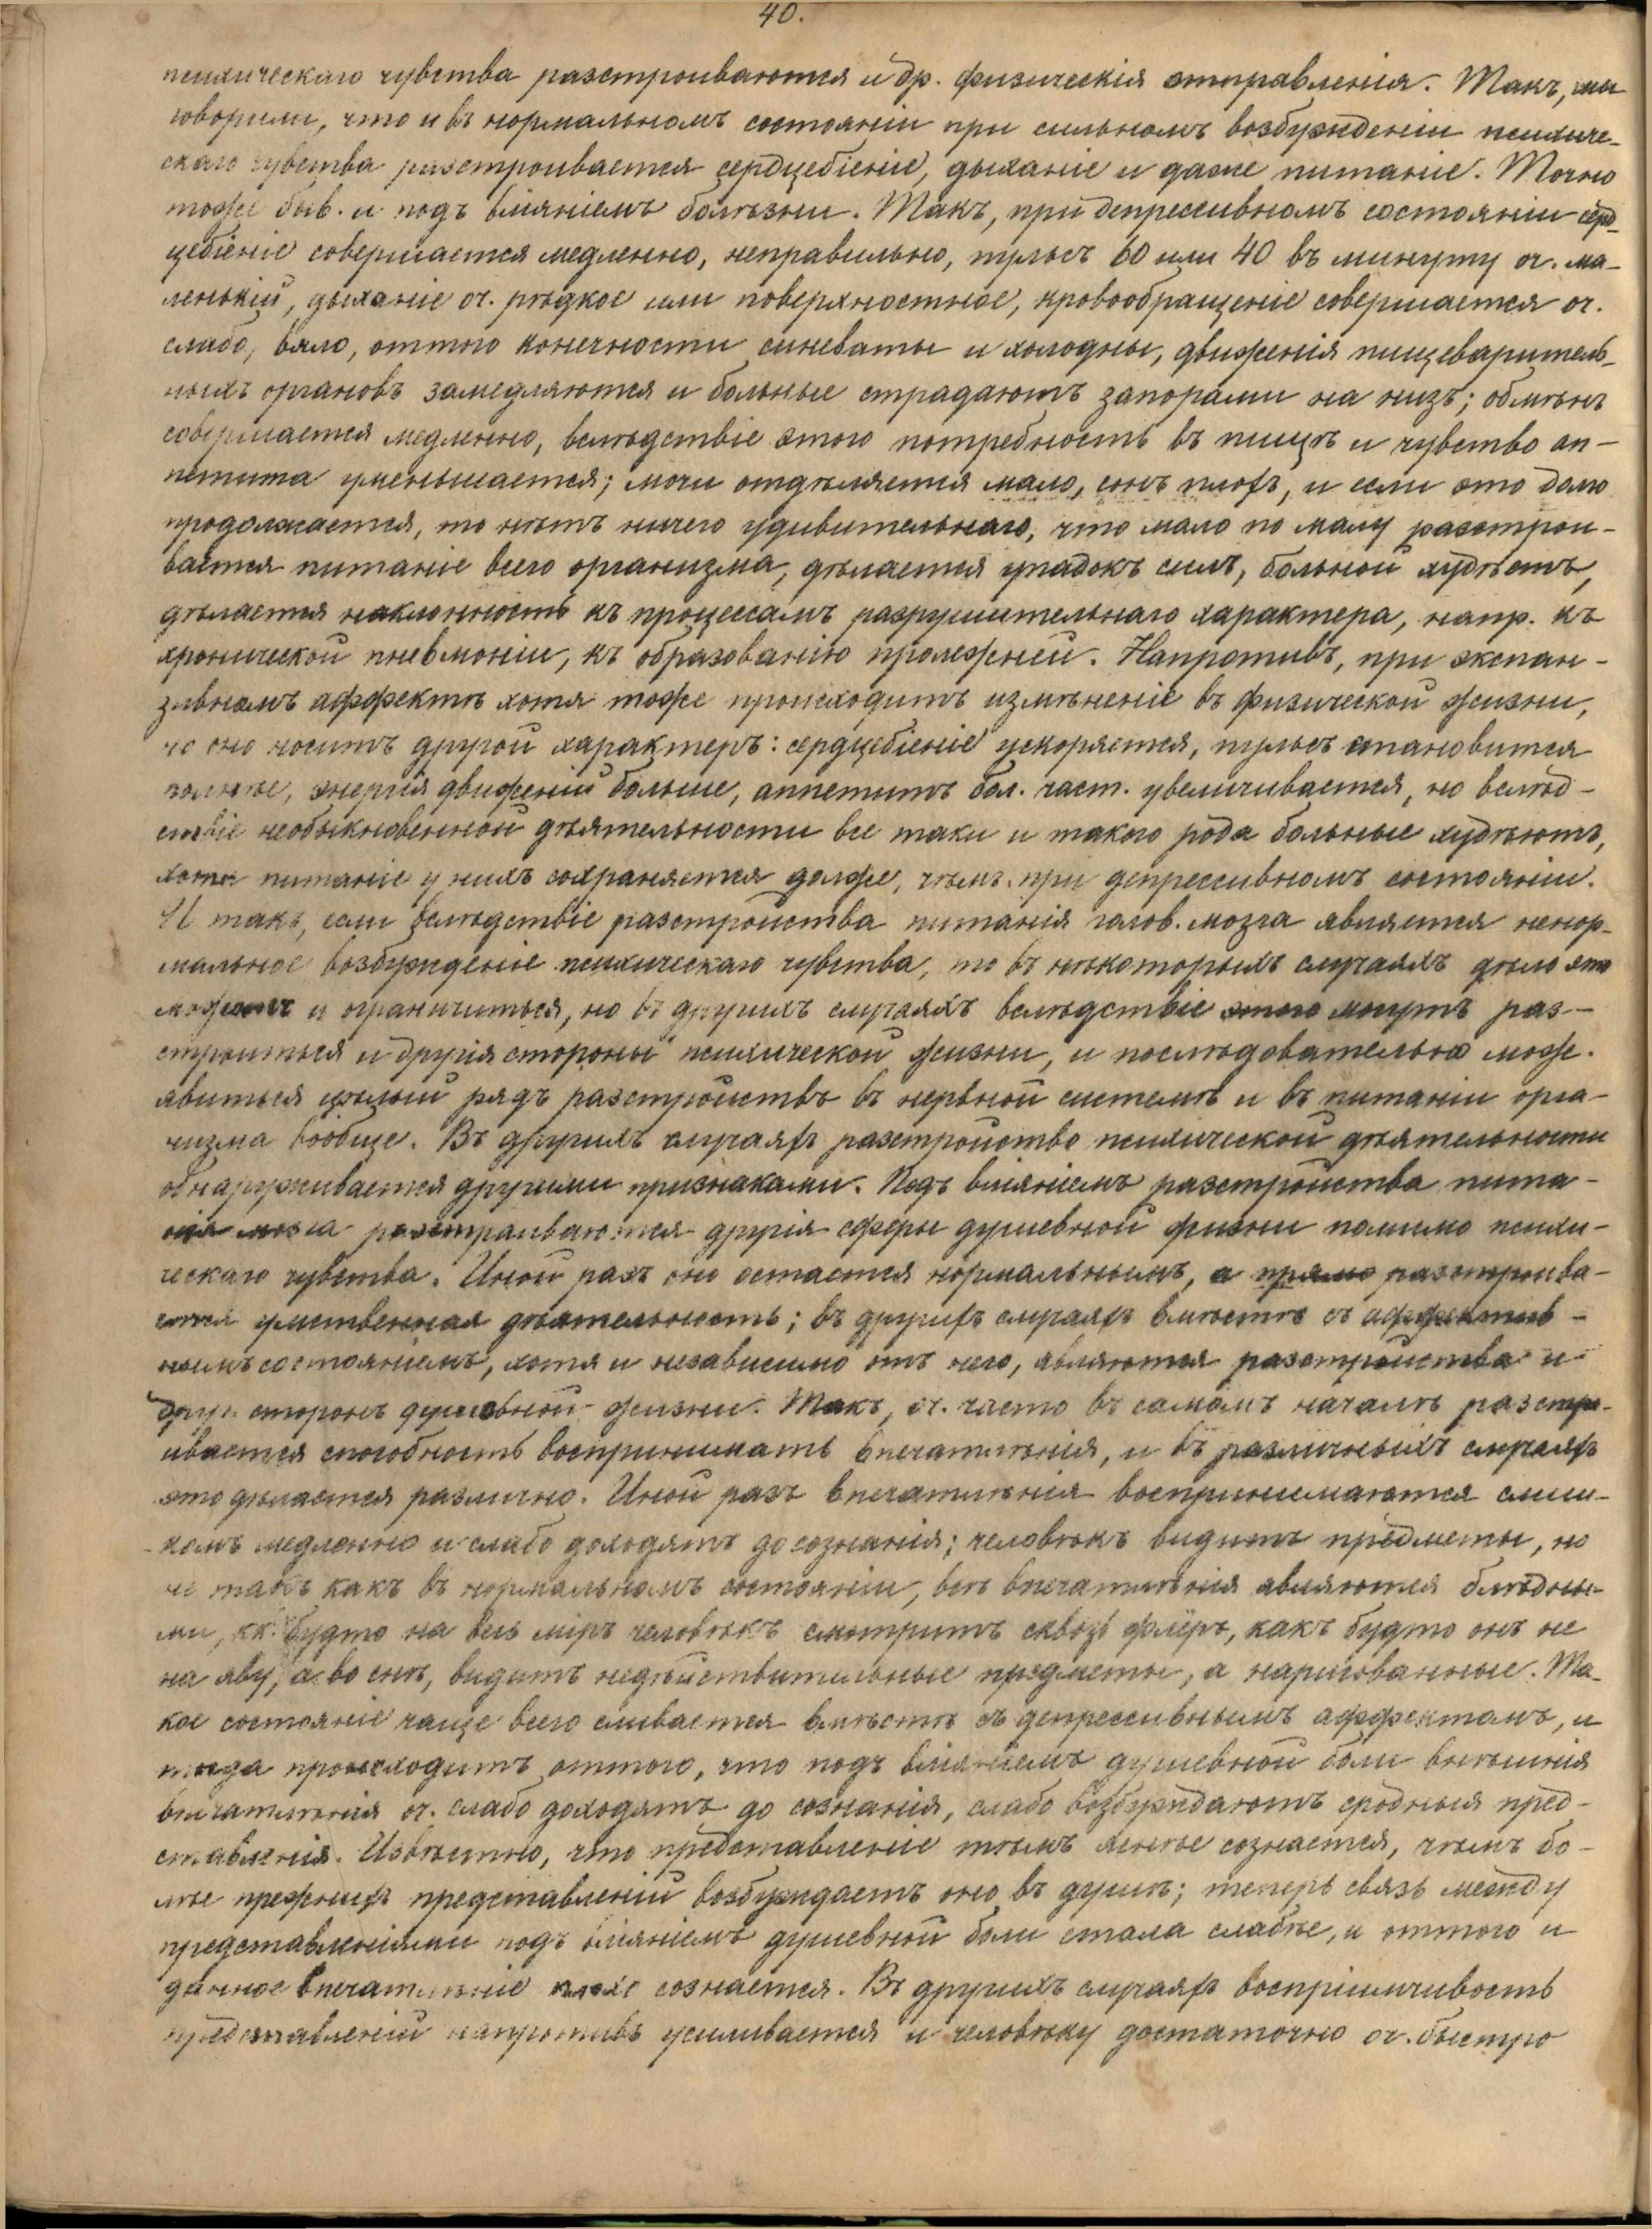 40.
психическаго чувства разстроиваются и др. физическія отправленія. Такъ, мы
говорили, что и въ нормальномъ состояніи при сильномъ возбужденіи психиче-
скаго чувства разстроивается сердцебіеніе, дыханіе и даже питаніе. Точно
тоже быв. и подъ вліяніемъ болѣзни. Такъ, при депрессивномъ состояніи серд-
цебіеніе совершается медленно, неправильно, пульсъ 60 или 40 въ минуту оч. ма-
ленькій, дыханіе оч. рѣдкое или поверхностное, кровообращеніе совершается оч.
слабо, вяло, оттого конечности синеваты и холодны, движенія пищеваритель-
ныхъ органовъ замедляются и больные страдаютъ запорами на низъ; обмѣнъ
совершается медленно, вслѣдствіе этого потребность въ пищѣ и чувство ап-
петита уменьшается; мочи отдѣляется мало, сонъ плохъ, и если это долго
продолжается, то нѣтъ ничего удивительнаго, что мало по малу разстрои-
вается питаніе всего организма, дѣлается упадокъ силъ, больной худѣетъ,
дѣлается наклонность къ процессамъ разрушительнаго характера, напр. къ
хронической пневмоніи, къ образованію пролежней. Напротивъ, при экспан-
зивномъ аффектѣ хотя тоже происходитъ измѣненіе въ физической жизни,
но оно носитъ другой характеръ: сердцебіеніе ускоряется, пульсъ становится
полнѣе, энергія движеній больше, аппетитъ бол. част. увеличивается, но вслѣд-
ствіе необыкновенной дѣятельности все таки и такого рода больные худѣютъ,
хотя питаніе у нихъ сохраняется долже, чѣмъ при депрессивномъ состояніи.
И такъ, если вслѣдствіе разстройства питанія голов. мозга является ненор-
мальное возбужденіе психическаго чувства, то въ нѣкоторыхъ случаяхъ дѣло этo
можетъ и ограничиться, но въ другихъ случаяхъ вслѣдствіе этого могутъ раз-
строиться и другія стороны психической жизни, и послѣдовательно мож.
явиться цѣлый рядъ разстройствъ въ нервной системѣ и въ питаніи орга-
низма вообще. Въ другихъ случаяхъ разстройство психической дѣятельности
обнаруживается другими признаками. Подъ вліяніемъ разстройства пита-
нія мозга разстраиваются другія сферы душевной жизни помимо психи-
ческаго чувства. Иной разъ оно остается нормальнымъ, а прямо разстроива-
ется умственная дѣятельность; въ другихъ случаяхъ вмѣстѣ съ аффектив-
нымъ состояніемъ, хотя и независимо отъ него, являются разстройства и
друг. сторонъ душевной жизни. Такъ, оч. часто въ самомъ началѣ разстро-
ивается способность воспринимать впечатлѣнія, и въ различныхъ случаяхъ
это дѣлается различно. Иной разъ впечатлѣнія воспринимаются слиш-
комъ медленно и слабо доходятъ до сознанія; человѣкъ видитъ предметы, но
не такъ какъ въ нормальномъ состояніи, всѣ впечатлѣнія являются блѣдны-
ми, кк. будто на весь міръ человѣкъ смотритъ сквозь флёръ, какъ будто онъ не
на яву, а во снѣ, видитъ недѣйствительные предметы, а нарисованные. Та-
кое состояніе чаще всего сливается вмѣстѣ съ депрессивнымъ аффектомъ, и
тогда происходитъ оттого, что подъ вліяніемъ душевной боли внѣшнія
впечатлѣнія оч. слабо доходятъ до сознанія, слабо возбуждаютъ сродныя пред-
ставленія. Извѣстно, что представленіе тѣмъ яснѣе сознается, чѣмъ бо-
лѣе прежнихъ представленій возбуждаетъ оно въ душѣ; теперь связь между
представленіями подъ вліяніемъ душевной боли стала слабѣе, и оттого и
данное впечатлѣніе плохо сознается. Въ другихъ случаяхъ воспріимчивость
представленій напротивъ усиливается и человѣку достаточно оч. быстро